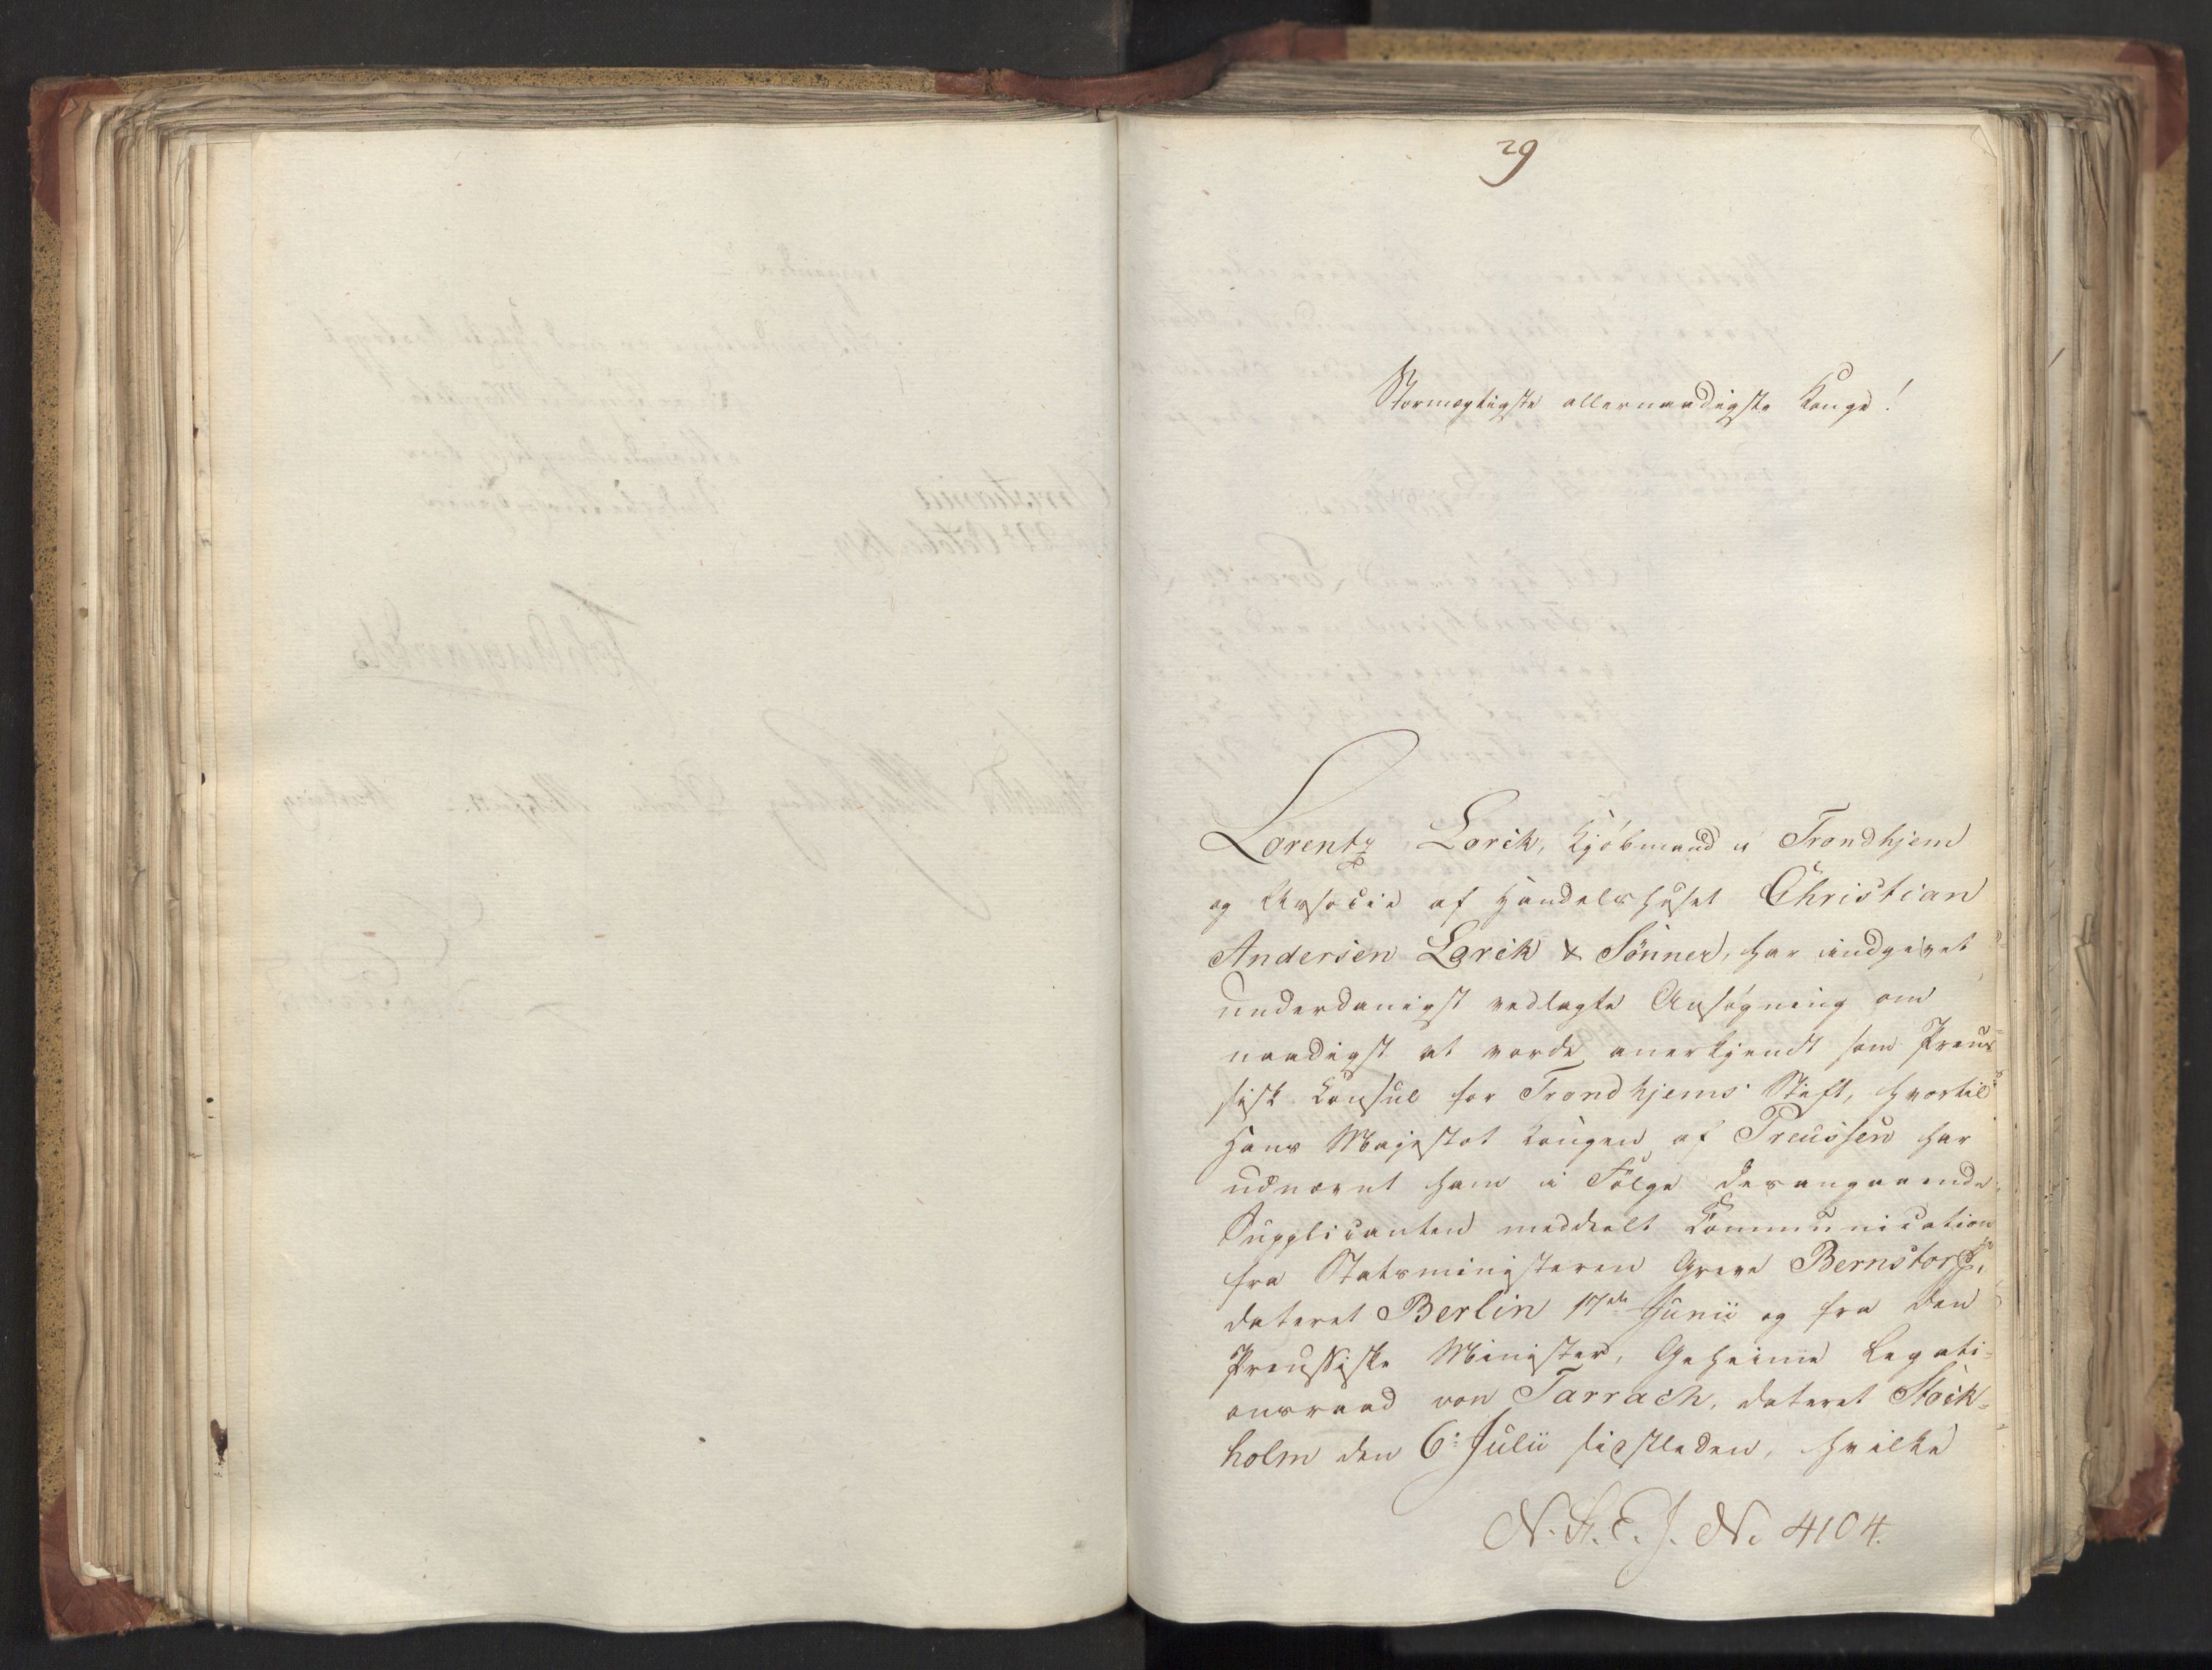 29
Stormægtigste allernaadigste Konge!
Lorentz Lorck, Kjøbmand i Trondhjem
og Associe af Handelshuset Christian
Andersen Lorck & Sönner, har indgivet
underdanigst vedlagte Ansøgning om
naadigst at vorde anerkjendt som Preus-
sisk Konsul for Trondhjems Stift, hvortil
Hans Majestæt Kongen af Preussen har
udnævnt ham i Følge desangaaende
Supplicanten meddeelt Communication
fra Statsministeren Greve Bernstorff,
dateret Berlin 17de Junii og fra den
Preussiske Minister, Geheime Legati-
onsraad von Tarrach, dateret Stock-
holm den 6: Julii sidstleden, hvilke
N. St. E. J. N. 4104.